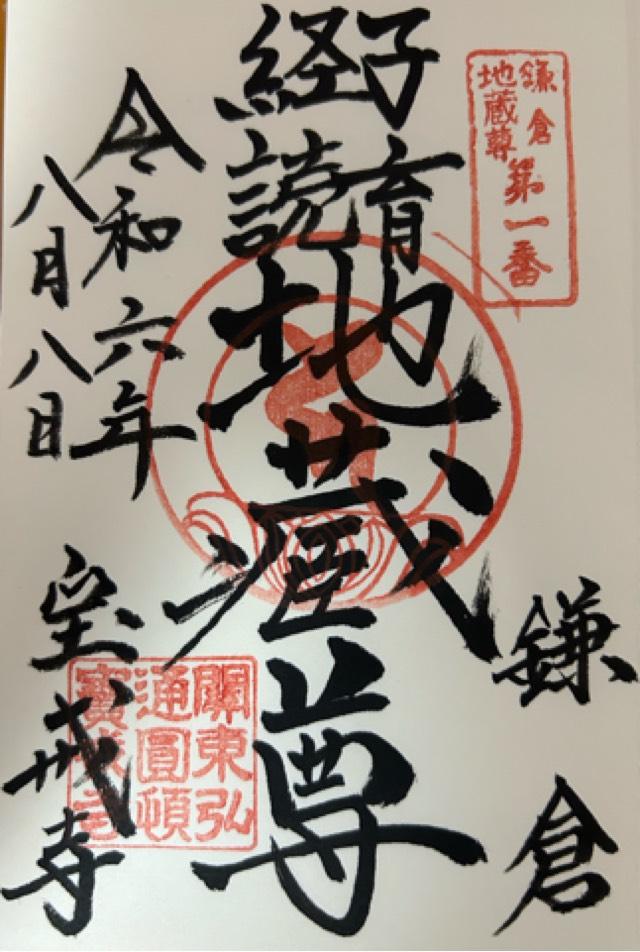 鎌倉
地蔵尊
第一番
子育
経読
地蔵尊
鎌倉
令和六年
八月八日
宝戒寺
關東弘
通圓頓
寶戒寺